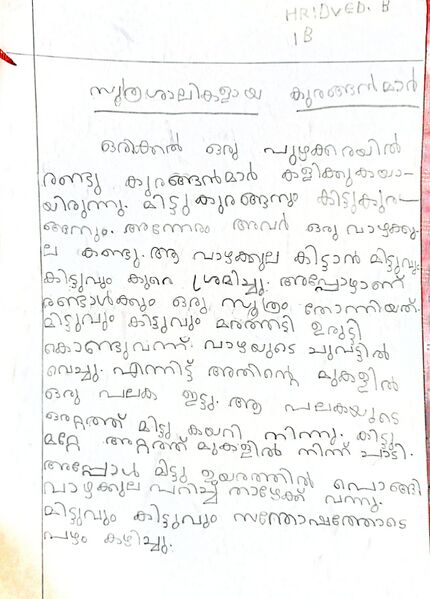 HRIDVED. B
1B
സൂത്രശാലികളായ കുരങ്ങൻമാർ
ഒരിക്കൽ ഒരു പുഴക്കരയിൽ
രണ്ടു കുരങ്ങൻമാർ കളിക്കുകയാ-
യിരുന്നു. മിട്ടു കുരങ്ങനും കിട്ടുകുര-
ങ്ങനും. അന്നേരം അവർ ഒരു വാഴക്കു-
ല കണ്ടു. ആ വാഴക്കുല കിട്ടാൻ മിട്ടുവും
കിട്ടുവും കുറെ ശ്രമിച്ചു. അപ്പോഴാണ്
രണ്ടാൾക്കും ഒരു സൂത്രം തോന്നിയത്.
മിട്ടുവും കിട്ടുവും മരത്തടി ഉരുട്ടി
കൊണ്ടുവന്ന് വാഴയുടെ ചുവട്ടിൽ
വെച്ചു. എന്നിട്ട് അതിന്റെ മുകളിൽ
ഒരു പലക ഇട്ടു. ആ പലകയുടെ
ഒരറ്റത്ത് മിട്ടു കയറി നിന്നു. കിട്ടു
മറ്റേ അറ്റത്ത് മുകളിൽ നിന്ന് ചാടി.
അപ്പോൾ മിട്ടു ഉയരത്തിൽ പൊങ്ങി
വാഴക്കുല പറിച്ച് താഴേക്ക് വന്നു.
മിട്ടുവും കിട്ടുവും സന്തോഷത്തോടെ
പഴം കഴിച്ചു.